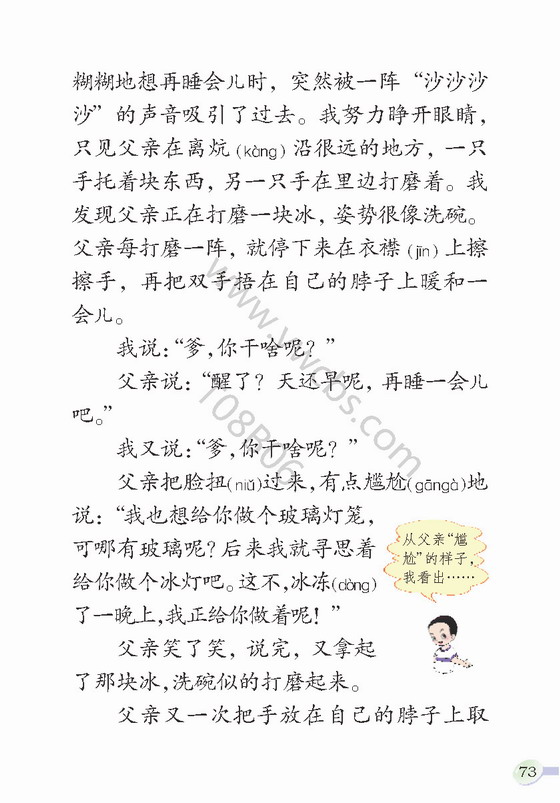 糊糊地想再睡会儿时，突然被一阵“沙沙沙
沙”的声音吸引了过去。我努力睁开眼睛，
只见父亲在离炕(kàng)沿很远的地方，一只
手托着块东西，另一只手在里边打磨着。我
发现父亲正在打磨一块冰，姿势很像洗碗。
父亲每打磨一阵，就停下来在衣襟(jīn)上擦
擦手，再把双手捂在自己的脖子上暖和一
会儿。
我说：“爹，你干啥呢？”
父亲说：“醒了？天还早呢，再睡一会儿
吧。”
我又说：“爹，你干啥呢？”
父亲把脸扭(niǔ)过来，有点尴尬(gāngà)地
说：“我也想给你做个玻璃灯笼，
可哪有玻璃呢？后来我就寻思着
给你做个冰灯吧。这不，冰冻(dòng)
了一晚上，我正给你做着呢！”
从父亲“尴
尬”的样子，
我看出……
父亲笑了笑，说完，又拿起
了那块冰，洗碗似的打磨起来。
父亲又一次把手放在自己的脖子上取
73
www.ywcbs.com
108R06